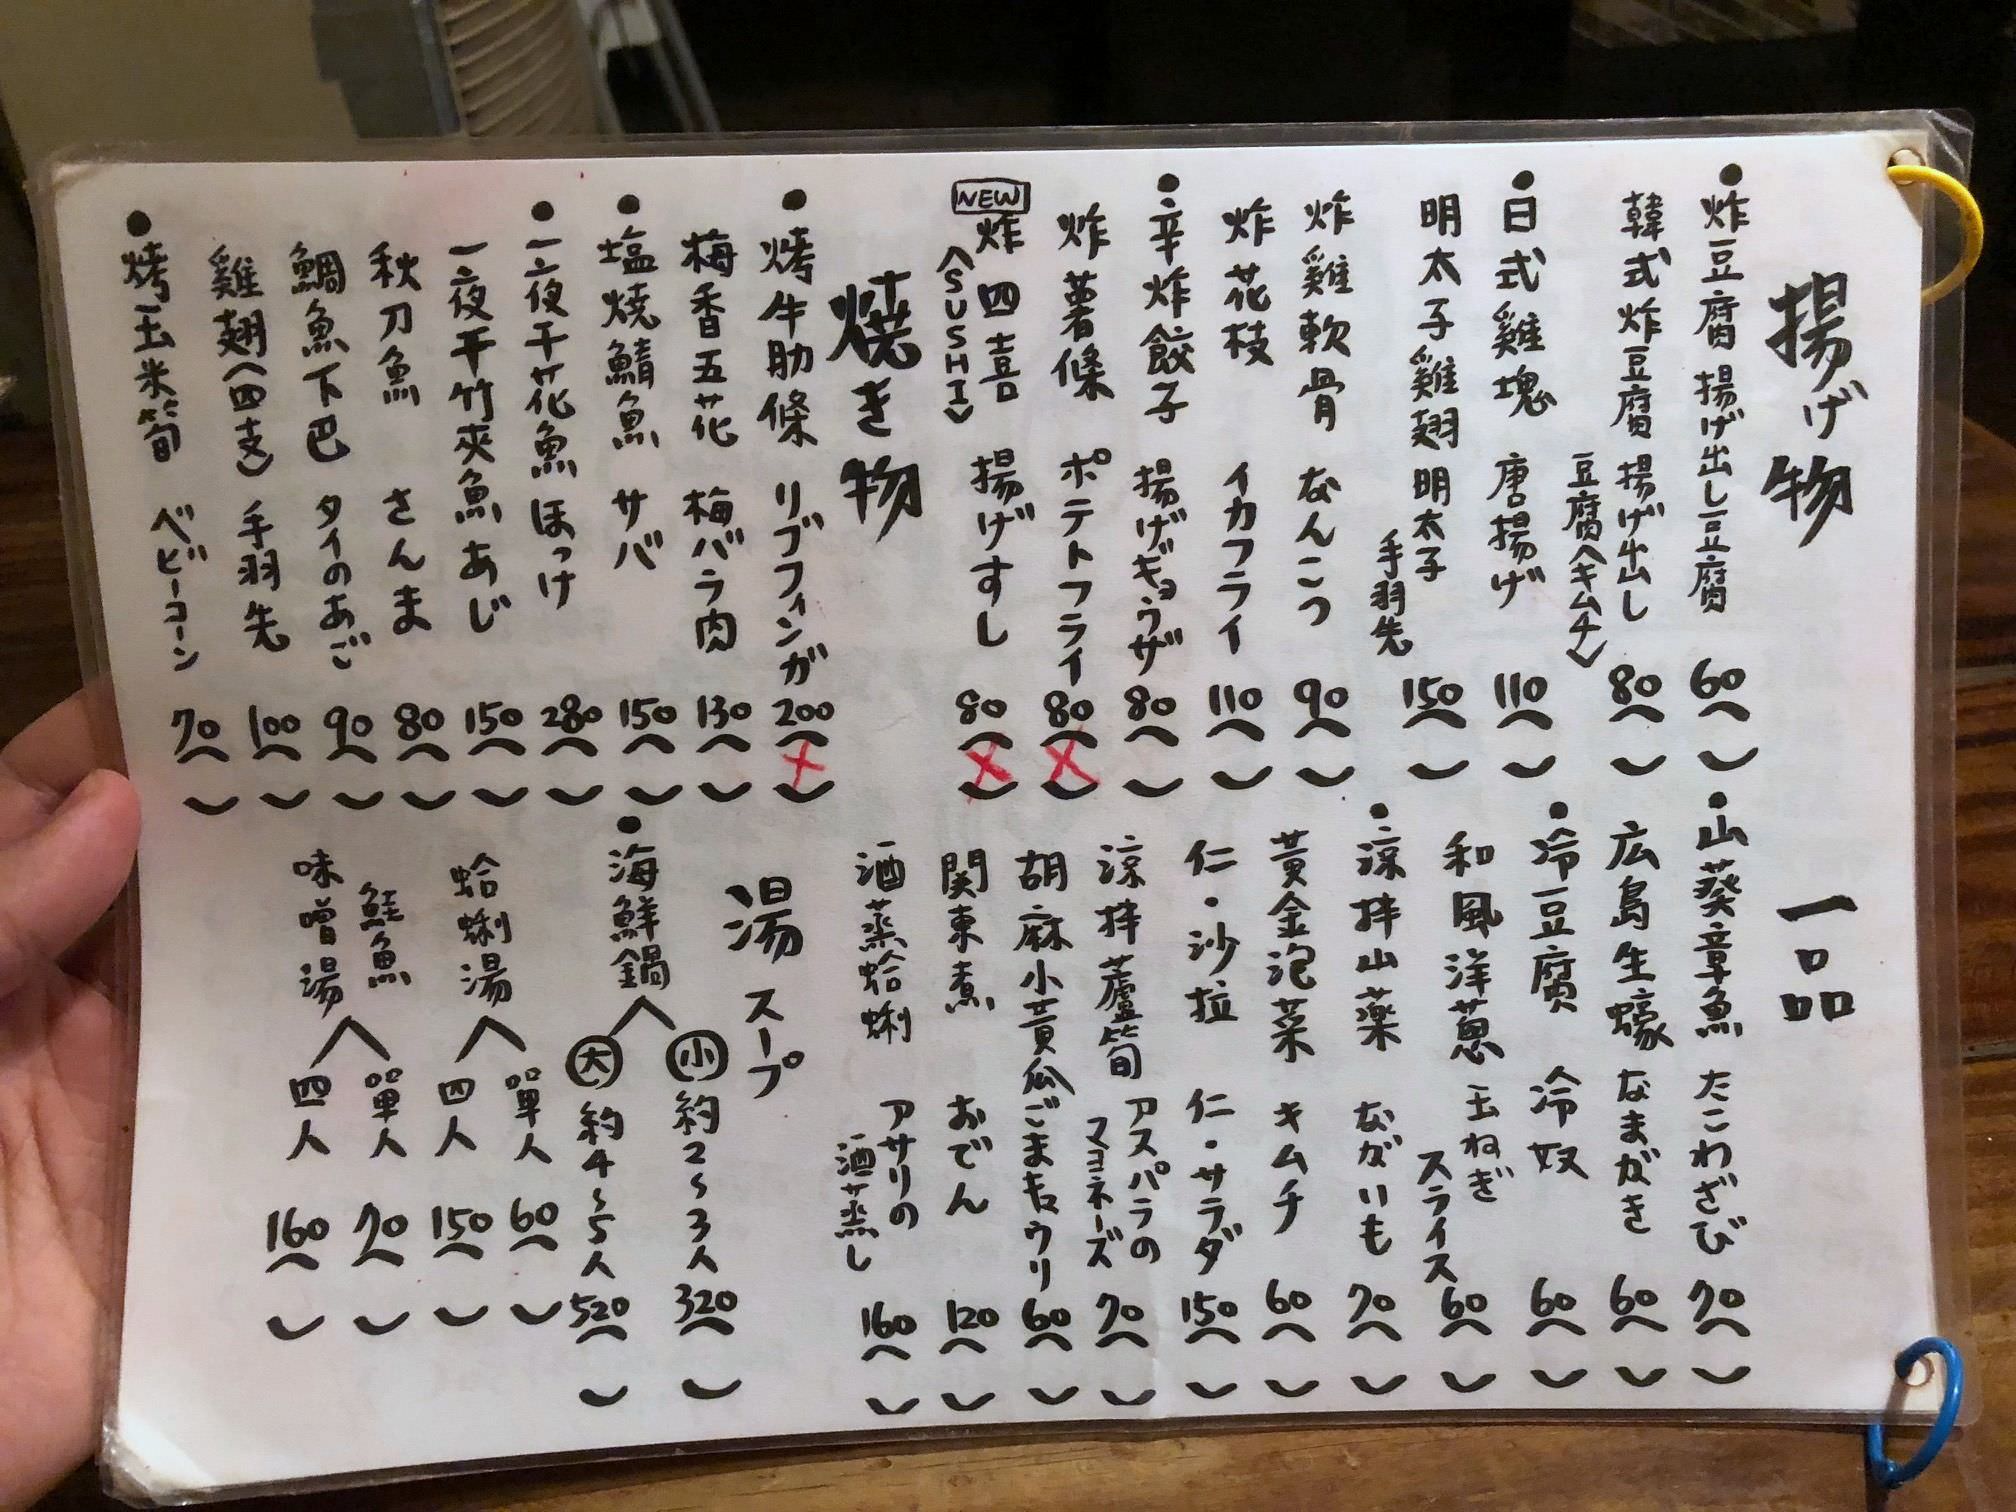 揚げ物
炸豆腐 揚げ出し豆腐 60
韓式炸豆腐 揚げ出し豆腐〈キムチ〉 80
日式雞塊 唐揚げ 110
明太子雞翅 明太子手羽先 150
炸雞軟骨 なんこつ 90
炸花枝 イカフライ 110
辛炸餃子 揚げギョウザ 80
炸薯條 ポテトフライ 80
NEW
炸四喜 揚げすし 80
〈SUSHI〉
焼き物
烤牛肋條 リブフィンガ 200
梅香五花 梅バラ肉 130
塩燒鯖魚 サバ 150
一夜干花魚 ほっけ 280
一夜干竹夾魚 あじ 150
秋刀魚 さんま 80
鯛魚下巴 タイのあご 90
雞翅〈四支〉 手羽先 100
烤玉米筍 ベビーコーン 70
一品
山葵章魚 たこわざび 70
広島生蠔 なまがき 60
冷豆腐 冷奴 60
和風洋蔥 玉ねぎスライス 60
涼拌山薬 ながいも 70
黃金泡菜 キムチ 60
仁・沙拉 仁・サラダ 150
涼拌蘆筍 アスパラのマヨネーズ 70
胡麻小黃瓜 ごまキュウリ 60
関東煮 おでん 120
酒蒸蛤蜊 アサリの酒蒸し 160
湯 スープ
海鮮鍋
小 約2~3人 320
大 約4~5人 520
蛤蜊湯
單人 60
四人 150
鮭魚味噌湯
單人 70
四人 160